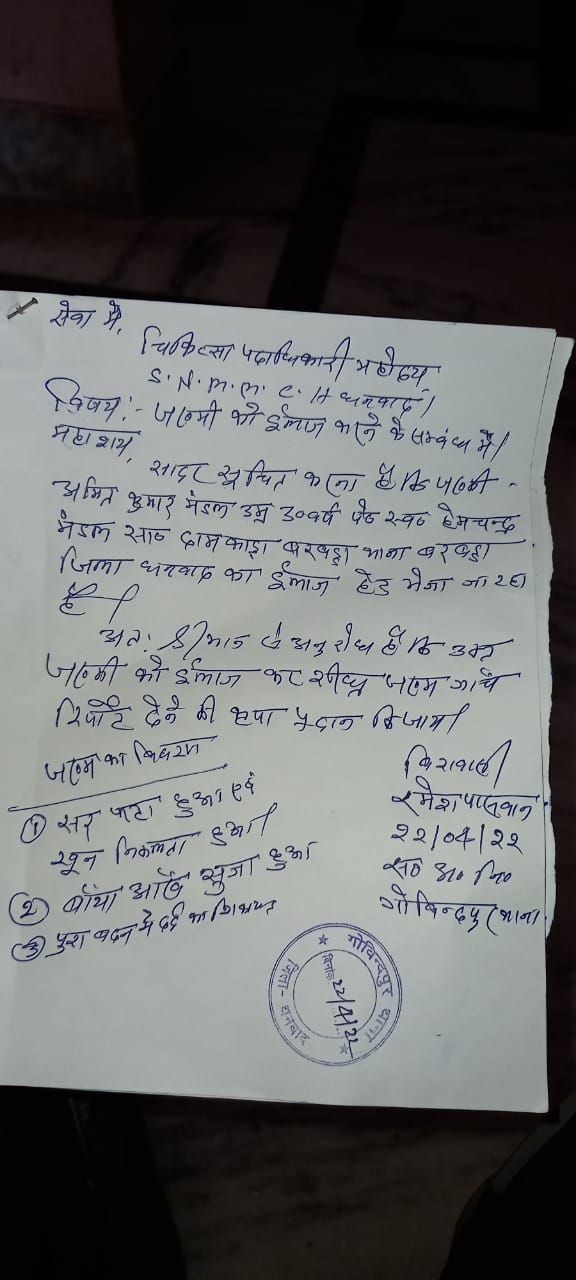 सेवा में,
चिकित्सा पदाधिकारी महोदय,
S.N.M.M.C.H धनबाद।
विषय:- जख्मी को ईलाज करने के सम्बंध में।
महाशय,
सादर सूचित करना है कि जख्मी -
अमित कुमार मंडल उम्र 30 वर्ष पे० स्व० हेमचन्द्र
मंडल सा० दामकाड़ा बरवड्डा थाना बरवड्डा
जिला धनबाद का ईलाज हेतु भेजा जा रहा
है।
अतः श्रीमान से अनुरोध है कि उक्त
जख्मी को ईलाज कर शीघ्र जख्म जाँच
रिपोर्ट देने की कृपा प्रदान किजाय।
जख्म का विवरण
① सर फटा हुआ एवं
खून निकलता हुआ।
② बाँया आँख सुजा हुआ
③ पुरा बदन में दर्द का
विश्वासी
रमेश पासवान
22/04/22
स० अ० नि०
गोविन्दपुर थाना
गोविन्दपुर थाना
दिनांक 22/4/22
जिला - धनबाद